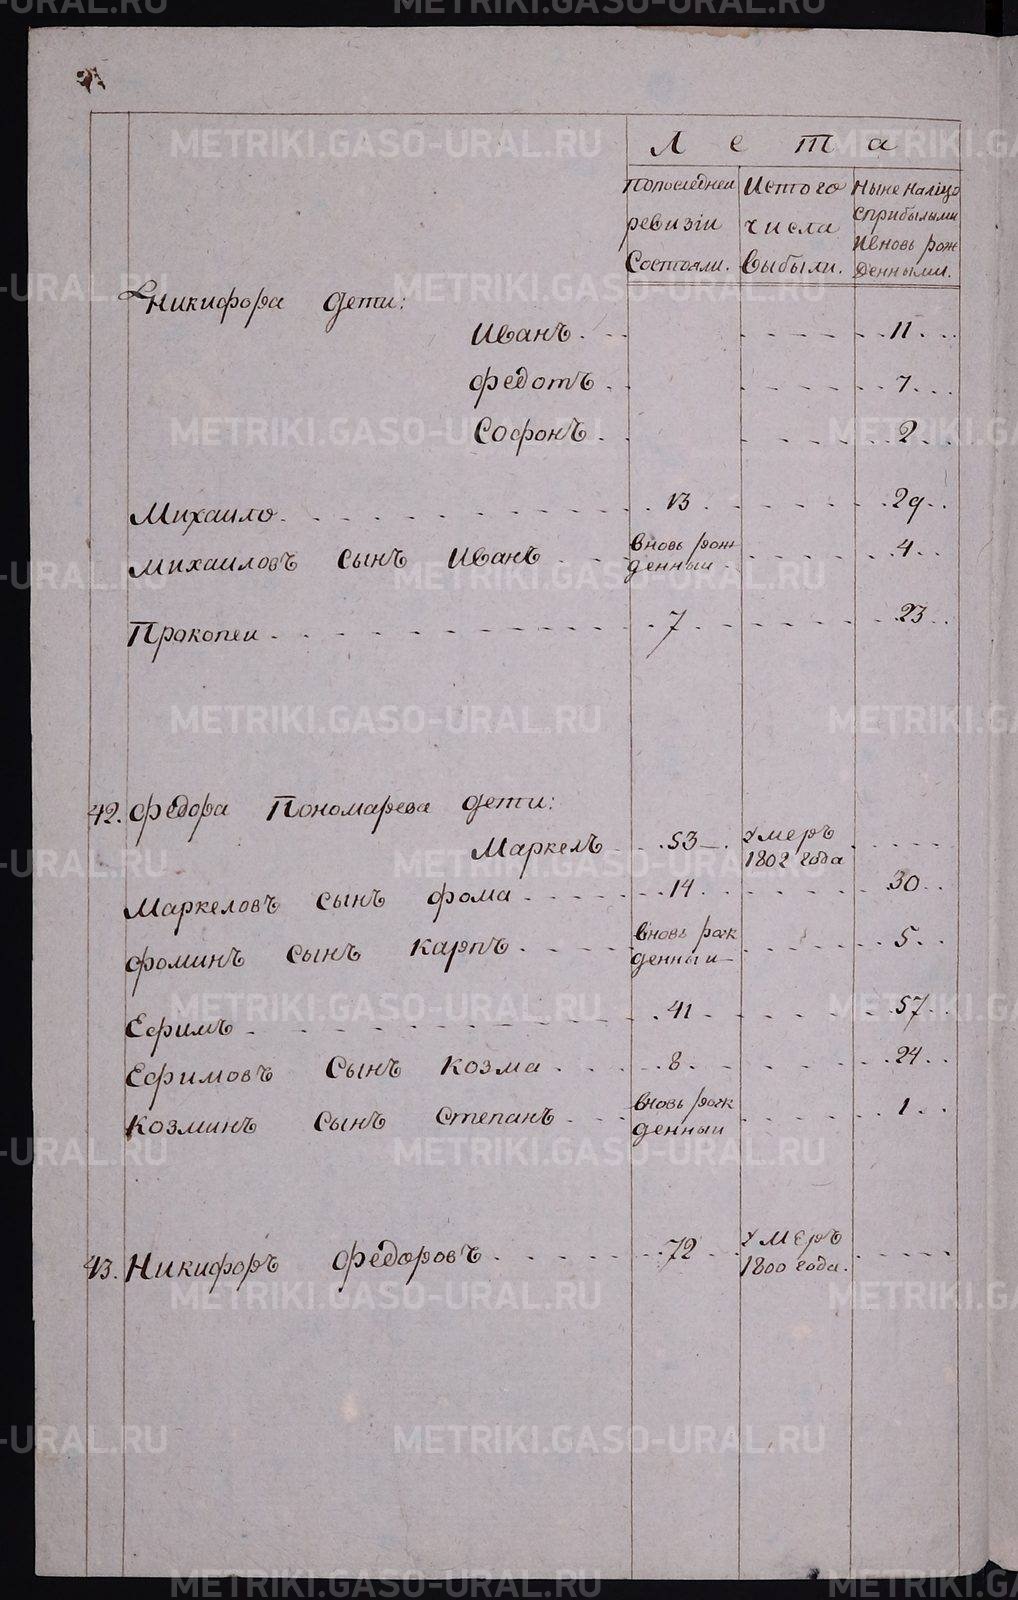 Л е т а
Попоследнеи
ревизіи
Состояли.
Истого
числа
выбыли.
Ныне налицо
сприбылыми
ивновь рож
денными.
Никифора дети:
Иванъ 11
федотъ 7
Софонъ 2
Михаило 13 29
михаиловъ сынъ иванъ вновь рож
денныи 4
Прокопеи 7 23
42. федора Пономарева дети:
Маркелъ 53 умеръ
1802 года
Маркеловъ сынъ фома 14 30
фоминъ сынъ карпъ вновь рож
денныи 5
Ефимъ 41 57
Ефимовъ Сынъ козма 8 24
козминъ сынъ степанъ вновь рож
денныи 1
43. Никифоръ федоровъ 72 умеръ
1800 года.
METRIKI.GASO-URAL.RU